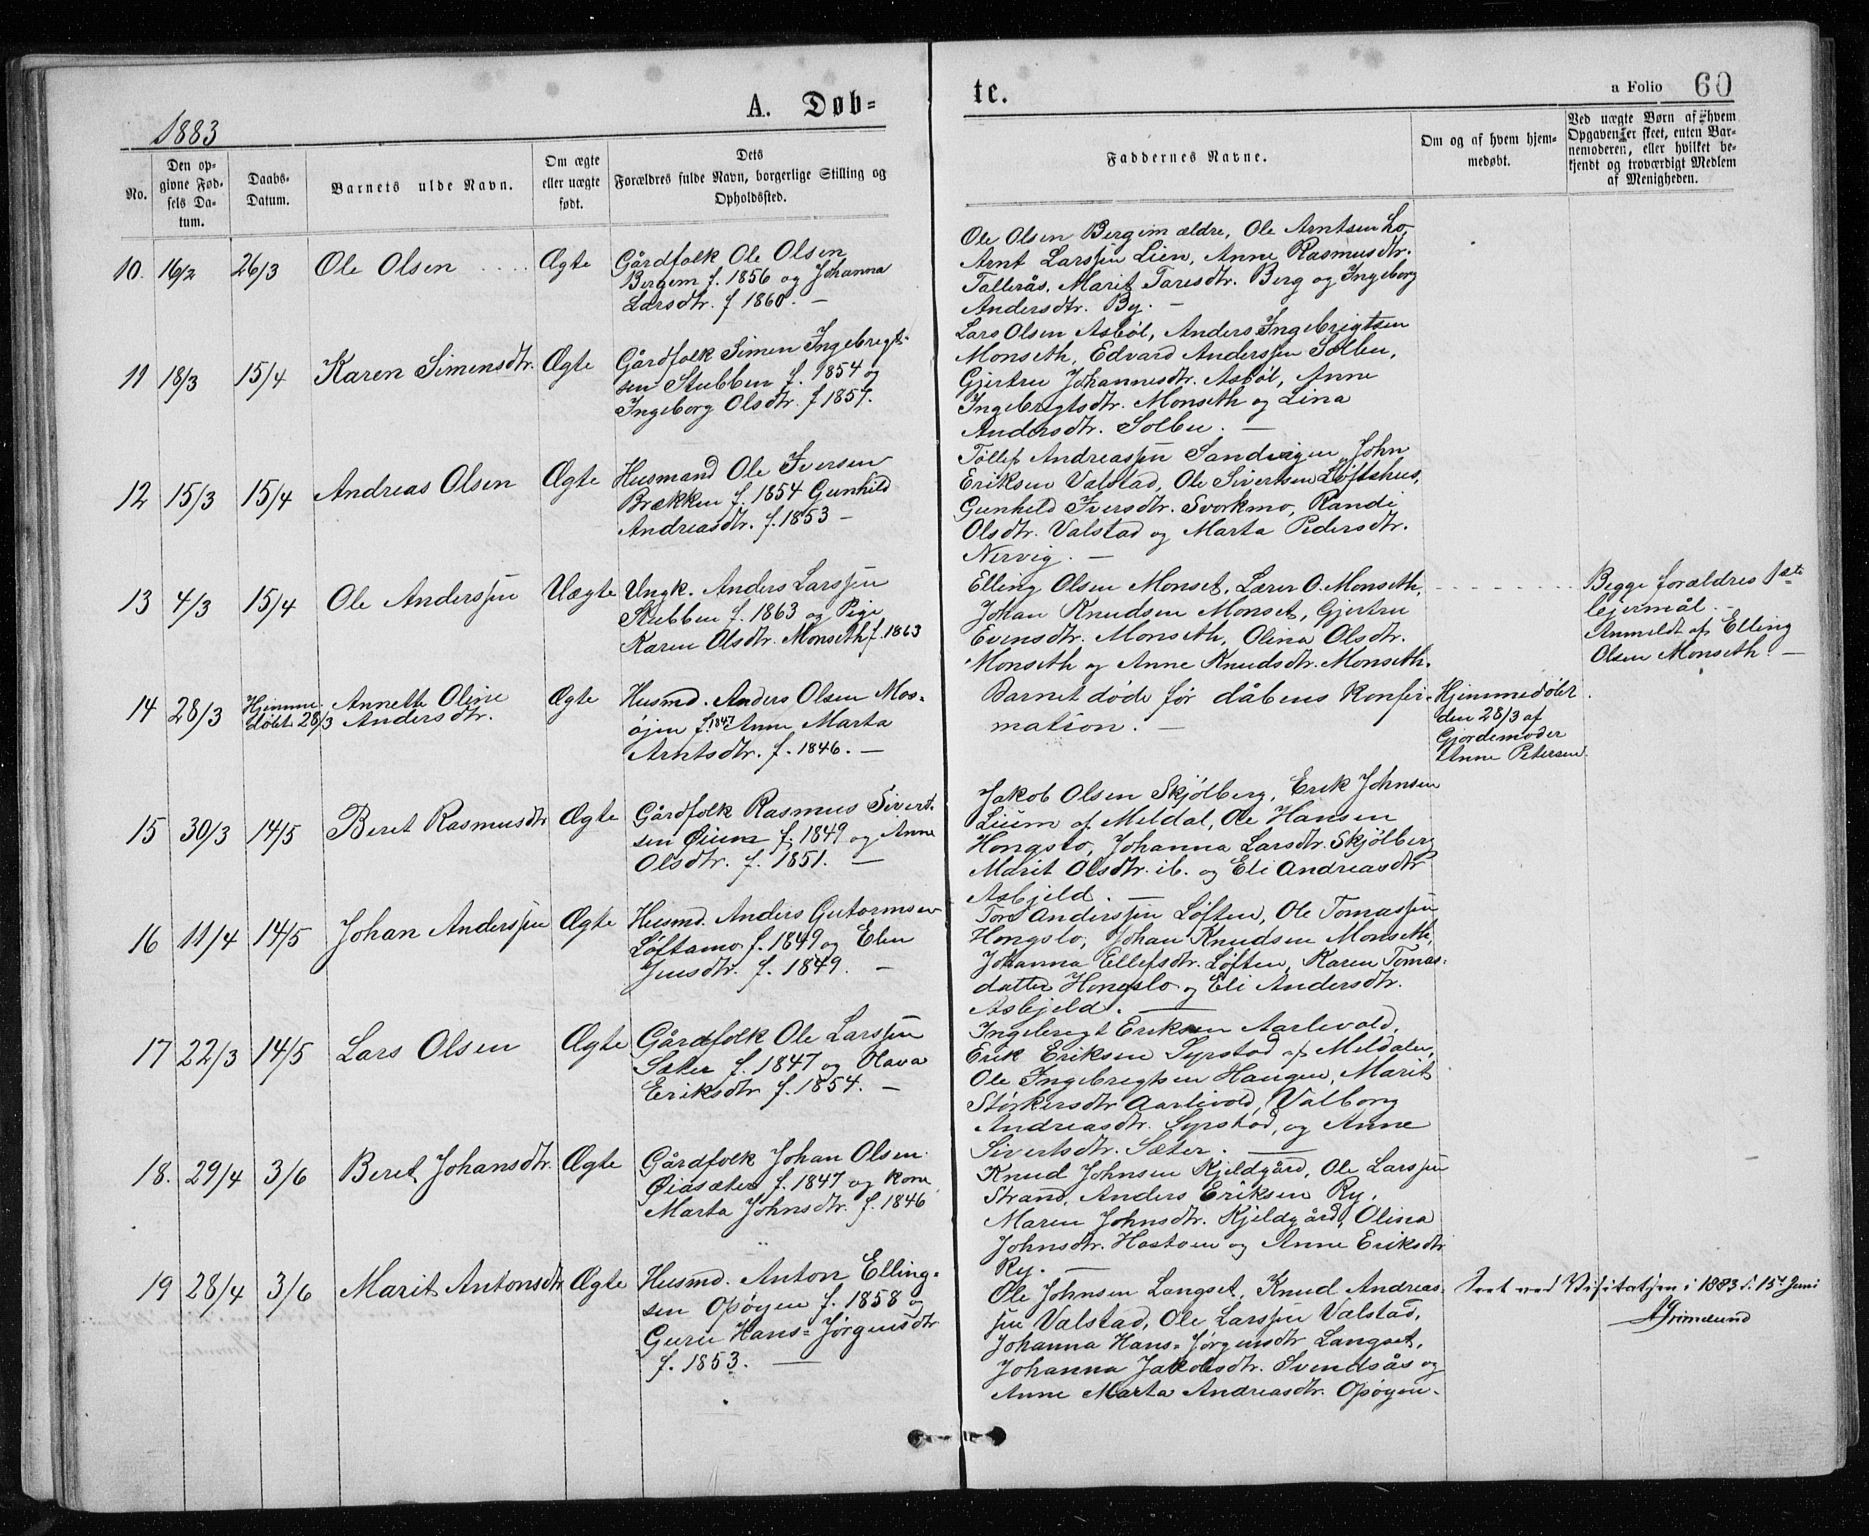 1883
A. Døb-
te.
a Folio 60
No.
Den op-
givne Fød-
sels Da-
tum.
Daabs-
Datum.
Barnets ulde Navn.
Om ægte
eller uægte
født.
Dets
Forældres fulde Navn, borgerlige Stilling og
Opholdssted.
Faddernes Navne.
Om og af hvem hjem-
medøbt.
Ved uægte Børn af hvem
Opgaven er skeet, enten Bar-
nemoderen, eller hvilket be-
kjendt og troværdigt Medlem
af Menigheden.
10. 16/2 26/3 Ole Olsen Ægte
Gårdfolk Ole Olsen
Bergem f. 1856 og Johanna
Larsdtr. f 1860. —
Ole Olsen Bergem ældre, Ole Arntsen Lo,
Arnt Larssen Lien, Anne Rasmusdtr.
Tallerås, Marit Toresdtr. Berg og Ingeborg
Andersdtr. By. —
11 18/3 15/4 Karen Simensdtr. Ægte
Gårdfolk Simen Ingebrigt-
sen Stubben f. 1854 og
Ingeborg Olsdtr. f 1857.
Lars Olsen Asbøl, Anders Ingebrigtsen
Monseth, Edvard Anderssen Solbu,
Gjertru Johannesdtr. Asbøl, Anne
Ingebrigtsdtr. Monseth og Lina
Andersdtr. Solbu. —
12 15/3 15/4 Andreas Olsen Ægte
Husmand Ole Iversen
Brækken f. 1854 Gunhild
Andreasdtr. f. 1853 —
Tøllef Andreassen Sandvigen, John
Eriksen Valstad, Ole Sivertsen Løftshus,
Gunhild Iversdtr. Svorkmo, Randi
Olsdtr. Valstad og Marta Pedersdtr.
Nervig. —
13 4/3 15/4 Ole Anderssen Uægte
Ungk. Anders Larssen
Stubben f. 1863 og Pige
Karen Olsdtr. Monseth f. 1863
Elling Olsen Monset, Lærer O. Monseth,
Johan Knudsen Monset, Gjertru
Evensdtr. Monseth, Olina Olsdtr.
Monseth og Anne Knudsdtr. Monseth.
Begge forældres 1ste
lejermål. —
Anmeldt af Elling
Olsen Monseth. —
14 28/3 Hjemme-
døbt 28/3
Annette Oline
Andersdtr.
Ægte
Husmd. Anders Olsen Mos-
øjen f. 1847 Anne Marta
Arntsdtr. f. 1846. —
Barnet døde før dåbens konfir-
mation. —
Hjemmedøbt
den 28/3 af
Gjordemoder
Anne Petersen.
15 30/3 14/5 Beret Rasmusdtr Ægte
Gårdfolk Rasmus Sivert-
sen Øium f. 1849 og Anne
Olsdtr. f. 1851. —
Jakob Olsen Skjølberg, Erik Johnsen
Lium af Meldal, Ole Hansen
Hongslo, Johanna Larsdtr. Skjølberg
Marit Olsdtr. ib. og Eli Andreasdtr
Asbjeld. —
16 11/4 14/5 Johan Anderssen Ægte
Husmd. Anders Gutormsen
Løftamo f. 1849 og Elen
Jensdtr. f. 1849. —
Tore Anderssen Løften, Ole Tomassen
Hongslo, Johan Knudsen Monseth,
Johanna Ellefsdtr. Løften, Karen Tomas-
datter Hongslo og Eli Andersdtr.
Asbjeld. —
17 22/3 14/5 Lars Olsen Ægte
Gårdfolk Ole Larssen
Sæter f. 1847 og Olava
Eriksdtr f. 1854. —
Ingebrigt Eriksen Aarlivold,
Erik Eriksen Syrstad af Meldalen,
Ole Ingebrigtsen Haugen, Marit
Størkersdtr Aarlivold, Valborg
Andreasdtr. Syrstad, og Anne
Sivertsdtr. Sæter. —
18. 29/4 3/6 Beret Johansdtr. Ægte
Gårdfolk Johan Olsen
Øiasæter f. 1847 og kone
Marta Johnsdtr. f. 1846
Knud Johnsen Kjeldgård, Ole Larssen
Strand, Anders Eriksen Ry,
Maren Johnsdtr. Kjeldgård, Olina
Johnsdtr. Hostoen og Anne Eriksdtr
Ry. —
19 28/4 3/6 Marit Antonsdtr Ægte
Husmd. Anton Elling-
sen Opøyen f. 1858 og
Guru Hans-Jørgensdtr
f. 1853. —
Ole Johnsen Langset, Knud Andreas-
sen Valstad, Ole Larssen Valstad,
Johanna Hans-Jørgensdtr Langset,
Johanna Jakobsdtr. Svendsås og
Anne Marta Andreasdtr. Opøyen.
Seet ved Visitatsen i 1883 d. 15de Juni
AGrimelund